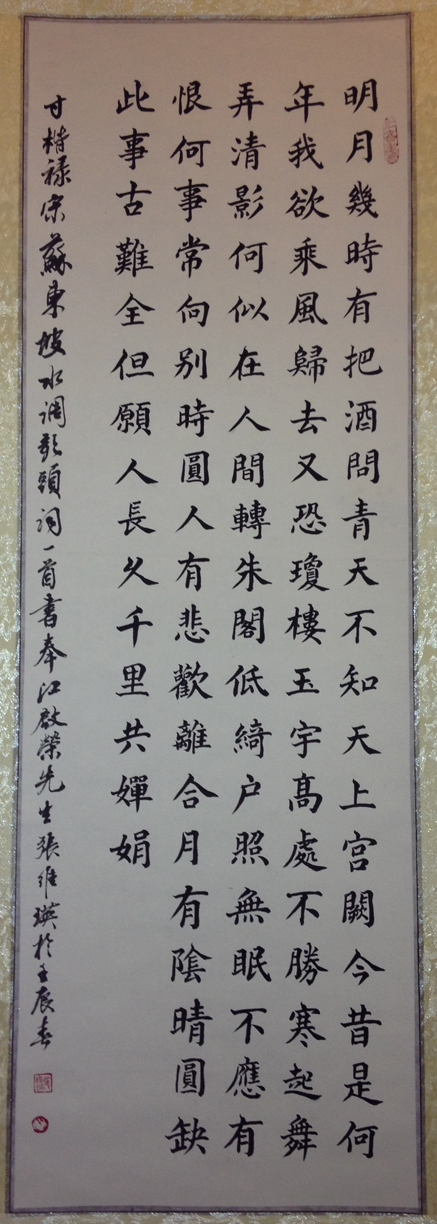 明月幾時有把酒問青天不知天上宫闕今昔是何
年我欲乘風歸去又恐瓊樓玉宇高處不勝寒起舞
弄清影何似在人間轉朱閣低綺户照無眠不應有
恨何事常向别時圓人有悲歡離合月有陰晴圓缺
此事古難全但願人長久千里共嬋娟
寸楷禄宋蘇東坡水调歌頭词一首書奉江啟榮先生張維瑛於壬辰春